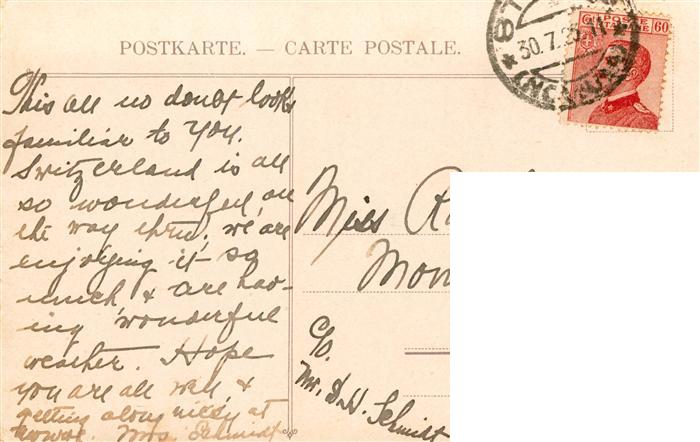 POSTKARTE. — CARTE POSTALE.
POSTE ITALIANE 60
30.7.25.11
This all no doubt looks
familiar to you.
Switzerland is all
so wonderful on
the way thru, we are
enjoying it so
much & are hav-
ing wonderful
weather. Hope
you are all well &
getting along nicely at
home. Mrs Schmidt
Miss
c/o.
Mr. D. H. Schmidt